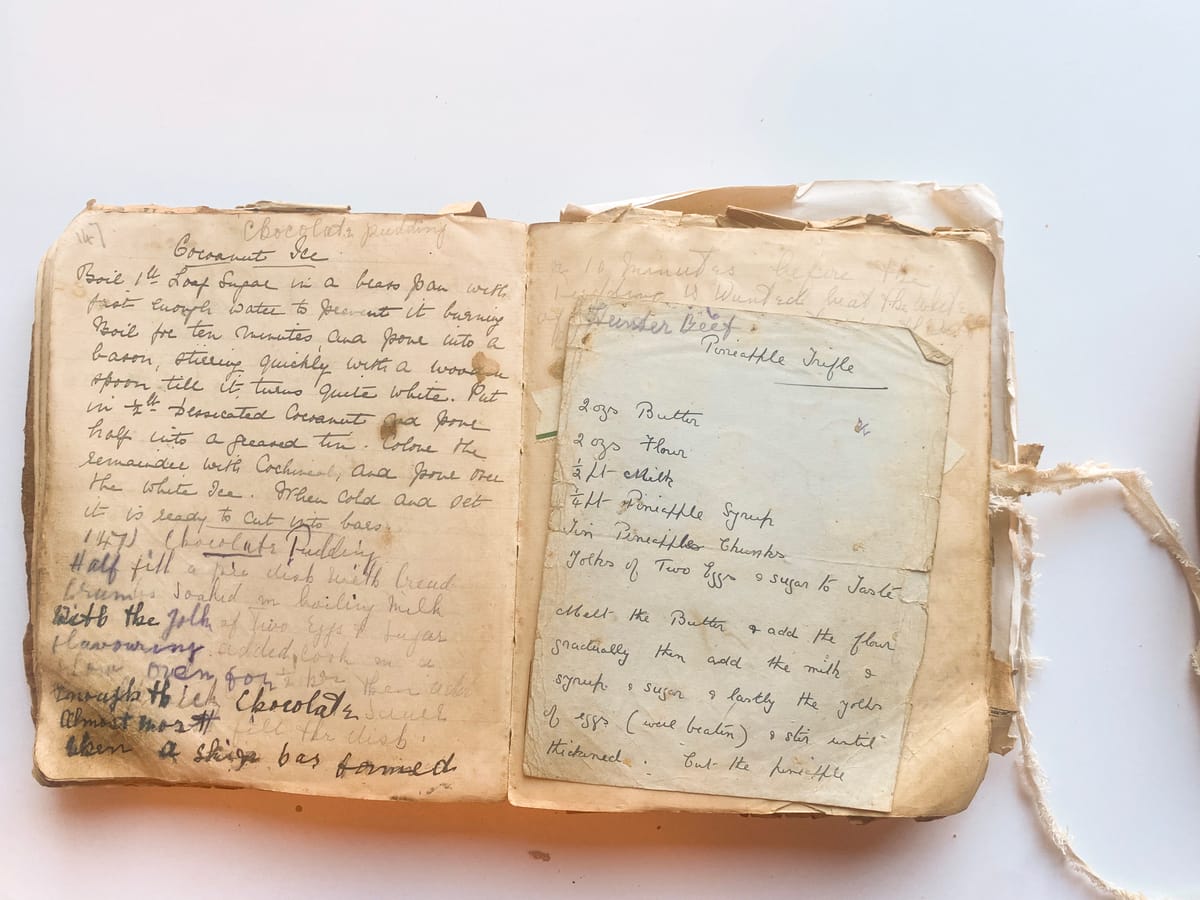 147
Chocolate pudding
Cocoanut Ice
Boil 1lb Loaf Sugar in a brass pan with
just enough water to prevent it burning
Boil for ten minutes and pour into a
bason, stirring quickly with a wooden
spoon till it turns quite white. Put
in ½lb Dessicated Cocoanut and pour
half into a greased tin. Colour the
remainder with Cochineal, and pour over
the white Ice. When cold and set
it is ready to cut into bars.
147) Chocolate Pudding
Half fill a pie dish with bread
crumbs soaked in boiling milk
with the yolk of two eggs & sugar
flavouring added, cook in a
slow oven for then add
enough thick Chocolate
Almost fill the dish.
when a skin has formed
or 10 minutes before the
pudding is wanted beat the
Hunter Beef
Pineapple Trifle
2 ozs Butter
2 ozs Flour
½ pt Milk
¼ pt Pineapple Syrup
Tin Pineapple Chunks
Yolks of Two Eggs & sugar to Taste
Melt the Butter & add the flour
gradually then add the milk &
syrup & sugar & lastly the yolks
of eggs (well beaten) & stir until
thickened. Cut the pineapple